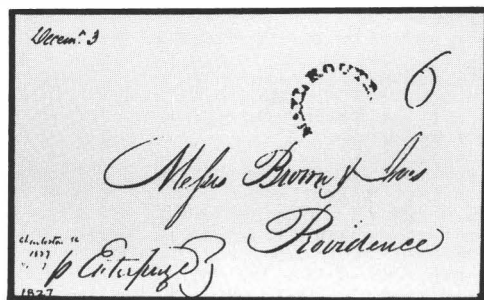 Decemr. 3
MAIL ROUTE
6
Messrs Brown & Ives
Providence
Charleston SC
1827
p Enterprize
1827